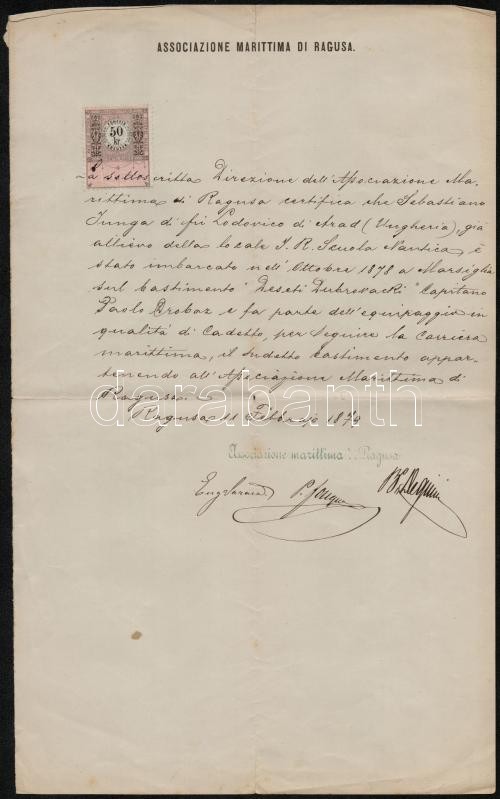 ASSOCIAZIONE MARITTIMA DI RAGUSA.
50
kr
La sottoscritta Direzione dell'Associazione Ma-
rittima di Ragusa certifica che Sebastiano
di Lodovico di Arad (Ungheria), già
allievo della locale I. R. Scuola Nautica è
stato imbarcato nell'Ottobre 1878 a Marsiglia
sul bastimento "Deseti Dubrovacki" Capitano
Paolo e fa parte dell'equipaggio in
qualità di Cadetto, per seguire la carriera
marittima, il sudetto bastimento appar-
tenendo all'Associazione Marittima di
Ragusa.
Ragusa Febbrajo 1879
darabanth
Associazione marittima di Ragusa